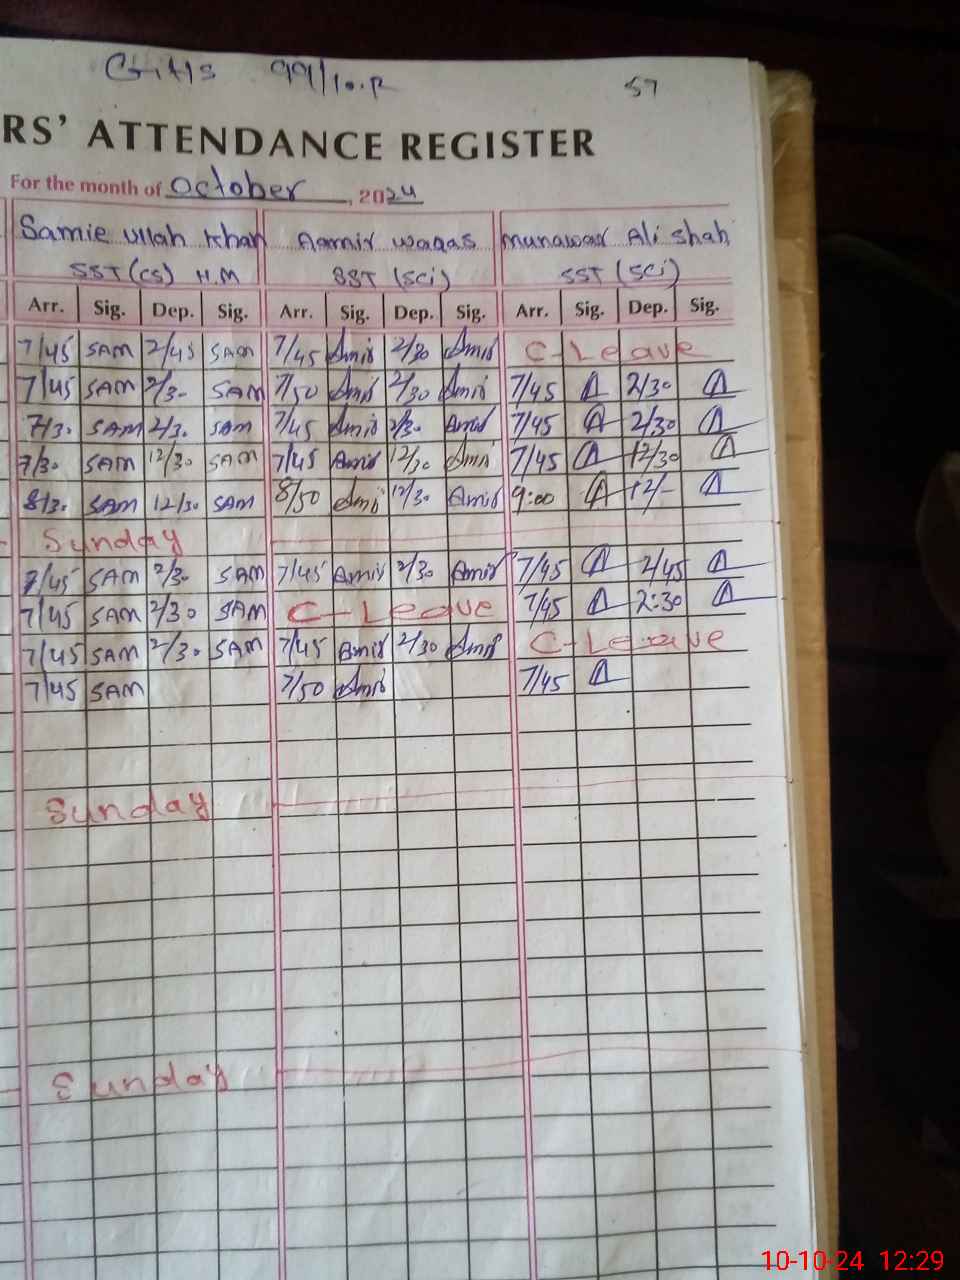 GHS 99/10.R
57
RS' ATTENDANCE REGISTER
For the month of October, 2024
Samie Ullah Khan Aamir Waqas Munawar Ali Shah
SST (CS) H.M SST (Sci) SST (Sci)
Arr. Sig. Dep. Sig. Arr. Sig. Dep. Sig. Arr. Sig. Dep. Sig.
7/45 SAM 2/45 SAM 7/45 Amir 2/30 Amir C-Leave
7/45 SAM 2/30 SAM 7/50 Amir 2/30 Amir 7/45 2/30
7/30 SAM 2/30 SAM 7/45 Amir 2/30 Amir 7/45 2/30
7/30 SAM 12/30 SAM 7/45 Amir 12/30 Amir 7/45 12/30
8/30 SAM 12/30 SAM 8/50 Amir 12/30 Amir 9:00 12/-
Sunday
7/45 SAM 2/30 SAM 7/45 Amir 2/30 Amir 7/45 2/45
7/45 SAM 2/30 SAM C-Leave 7/45 2:30
7/45 SAM 2/30 SAM 7/45 Amir 2/30 Amir C-Leave
7/45 SAM 7/50 Amir 7/45
Sunday
Sunday
10-10-24 12:29